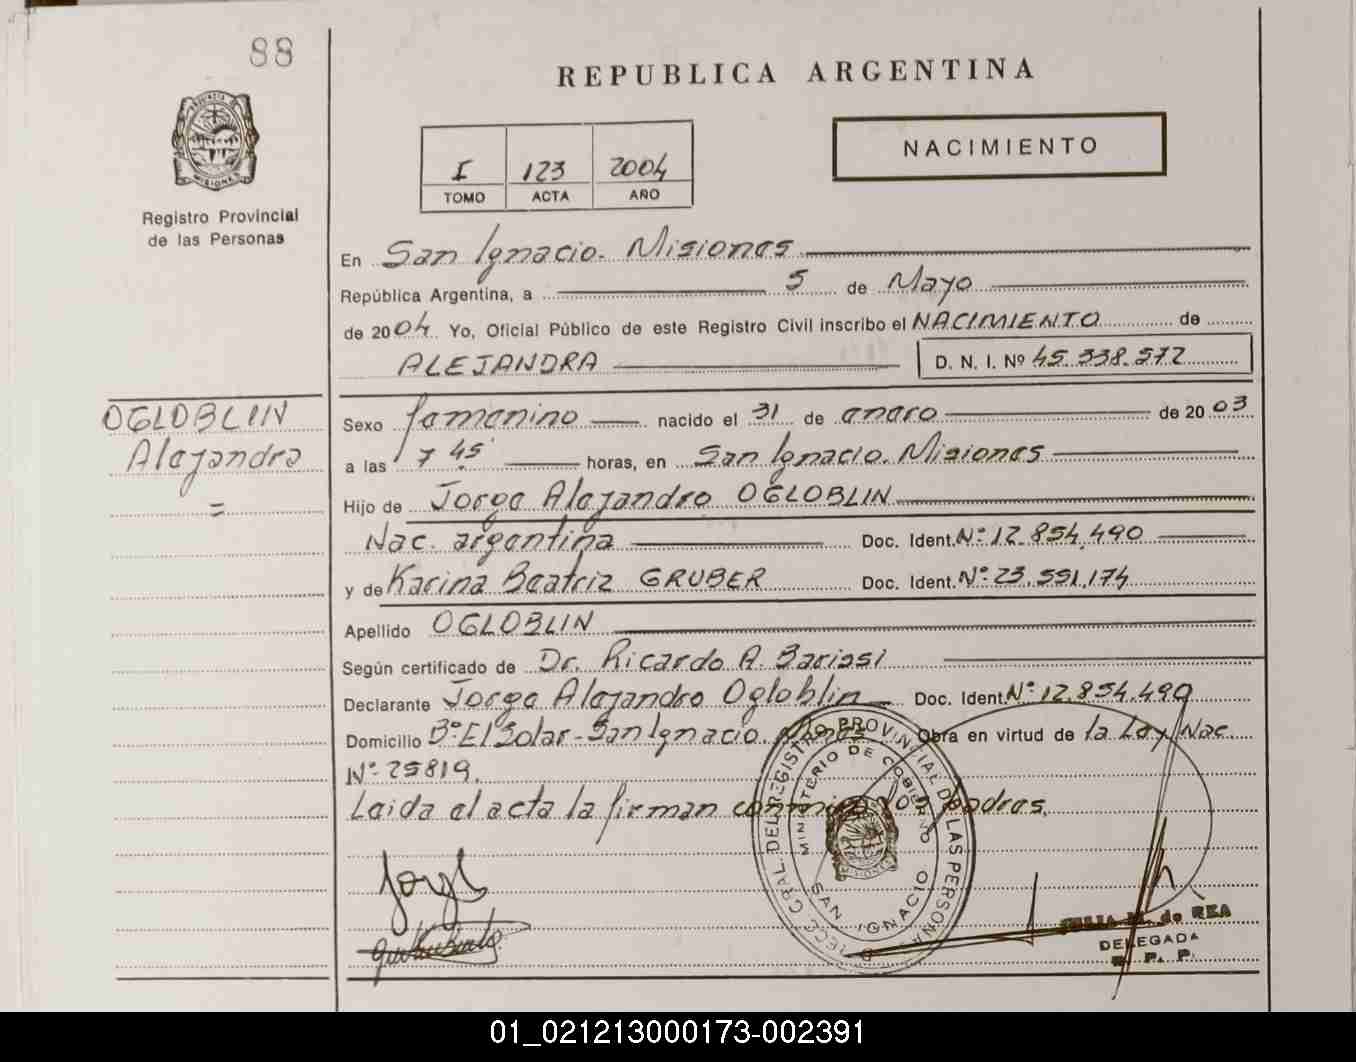 88
REPUBLICA ARGENTINA
PROVINCIA DE
MISIONES
Registro Provincial
de las Personas
I 123 2004
TOMO ACTA AÑO
NACIMIENTO
En San Ignacio. Misiones
República Argentina, a 5 de Mayo
de 2004. Yo, Oficial Público de este Registro Civil inscribo el NACIMIENTO de
ALEJANDRA D. N. I. Nº 45.338.572
OGLOBLIN
Alejandra
=
Sexo femenino nacido el 31 de enero de 2003
a las 7 45' horas, en San Ignacio. Misiones
Hijo de Jorge Alejandro OGLOBLIN
Nac. argentina Doc. Ident. Nº 12.854.490
y de Karina Beatriz GRUBER Doc. Ident. Nº 23.551.174
Apellido OGLOBLIN
Según certificado de Dr. Ricardo A. Barissi
Declarante Jorge Alejandro Ogloblin Doc. Ident. Nº 12.854.490
Domicilio Bº El Solar - San Ignacio. Mnes Obra en virtud de la Ley Nac.
Nº 25819.
Leida el acta la firman conmigo los padres.
Jorge
DIRECC. GRAL. DEL REGISTRO PROVINCIAL DE LAS PERSONAS
MINISTERIO DE GOBIERNO
SAN IGNACIO
M. de REA
DELEGADA
R. P. P.
01_021213000173-002391